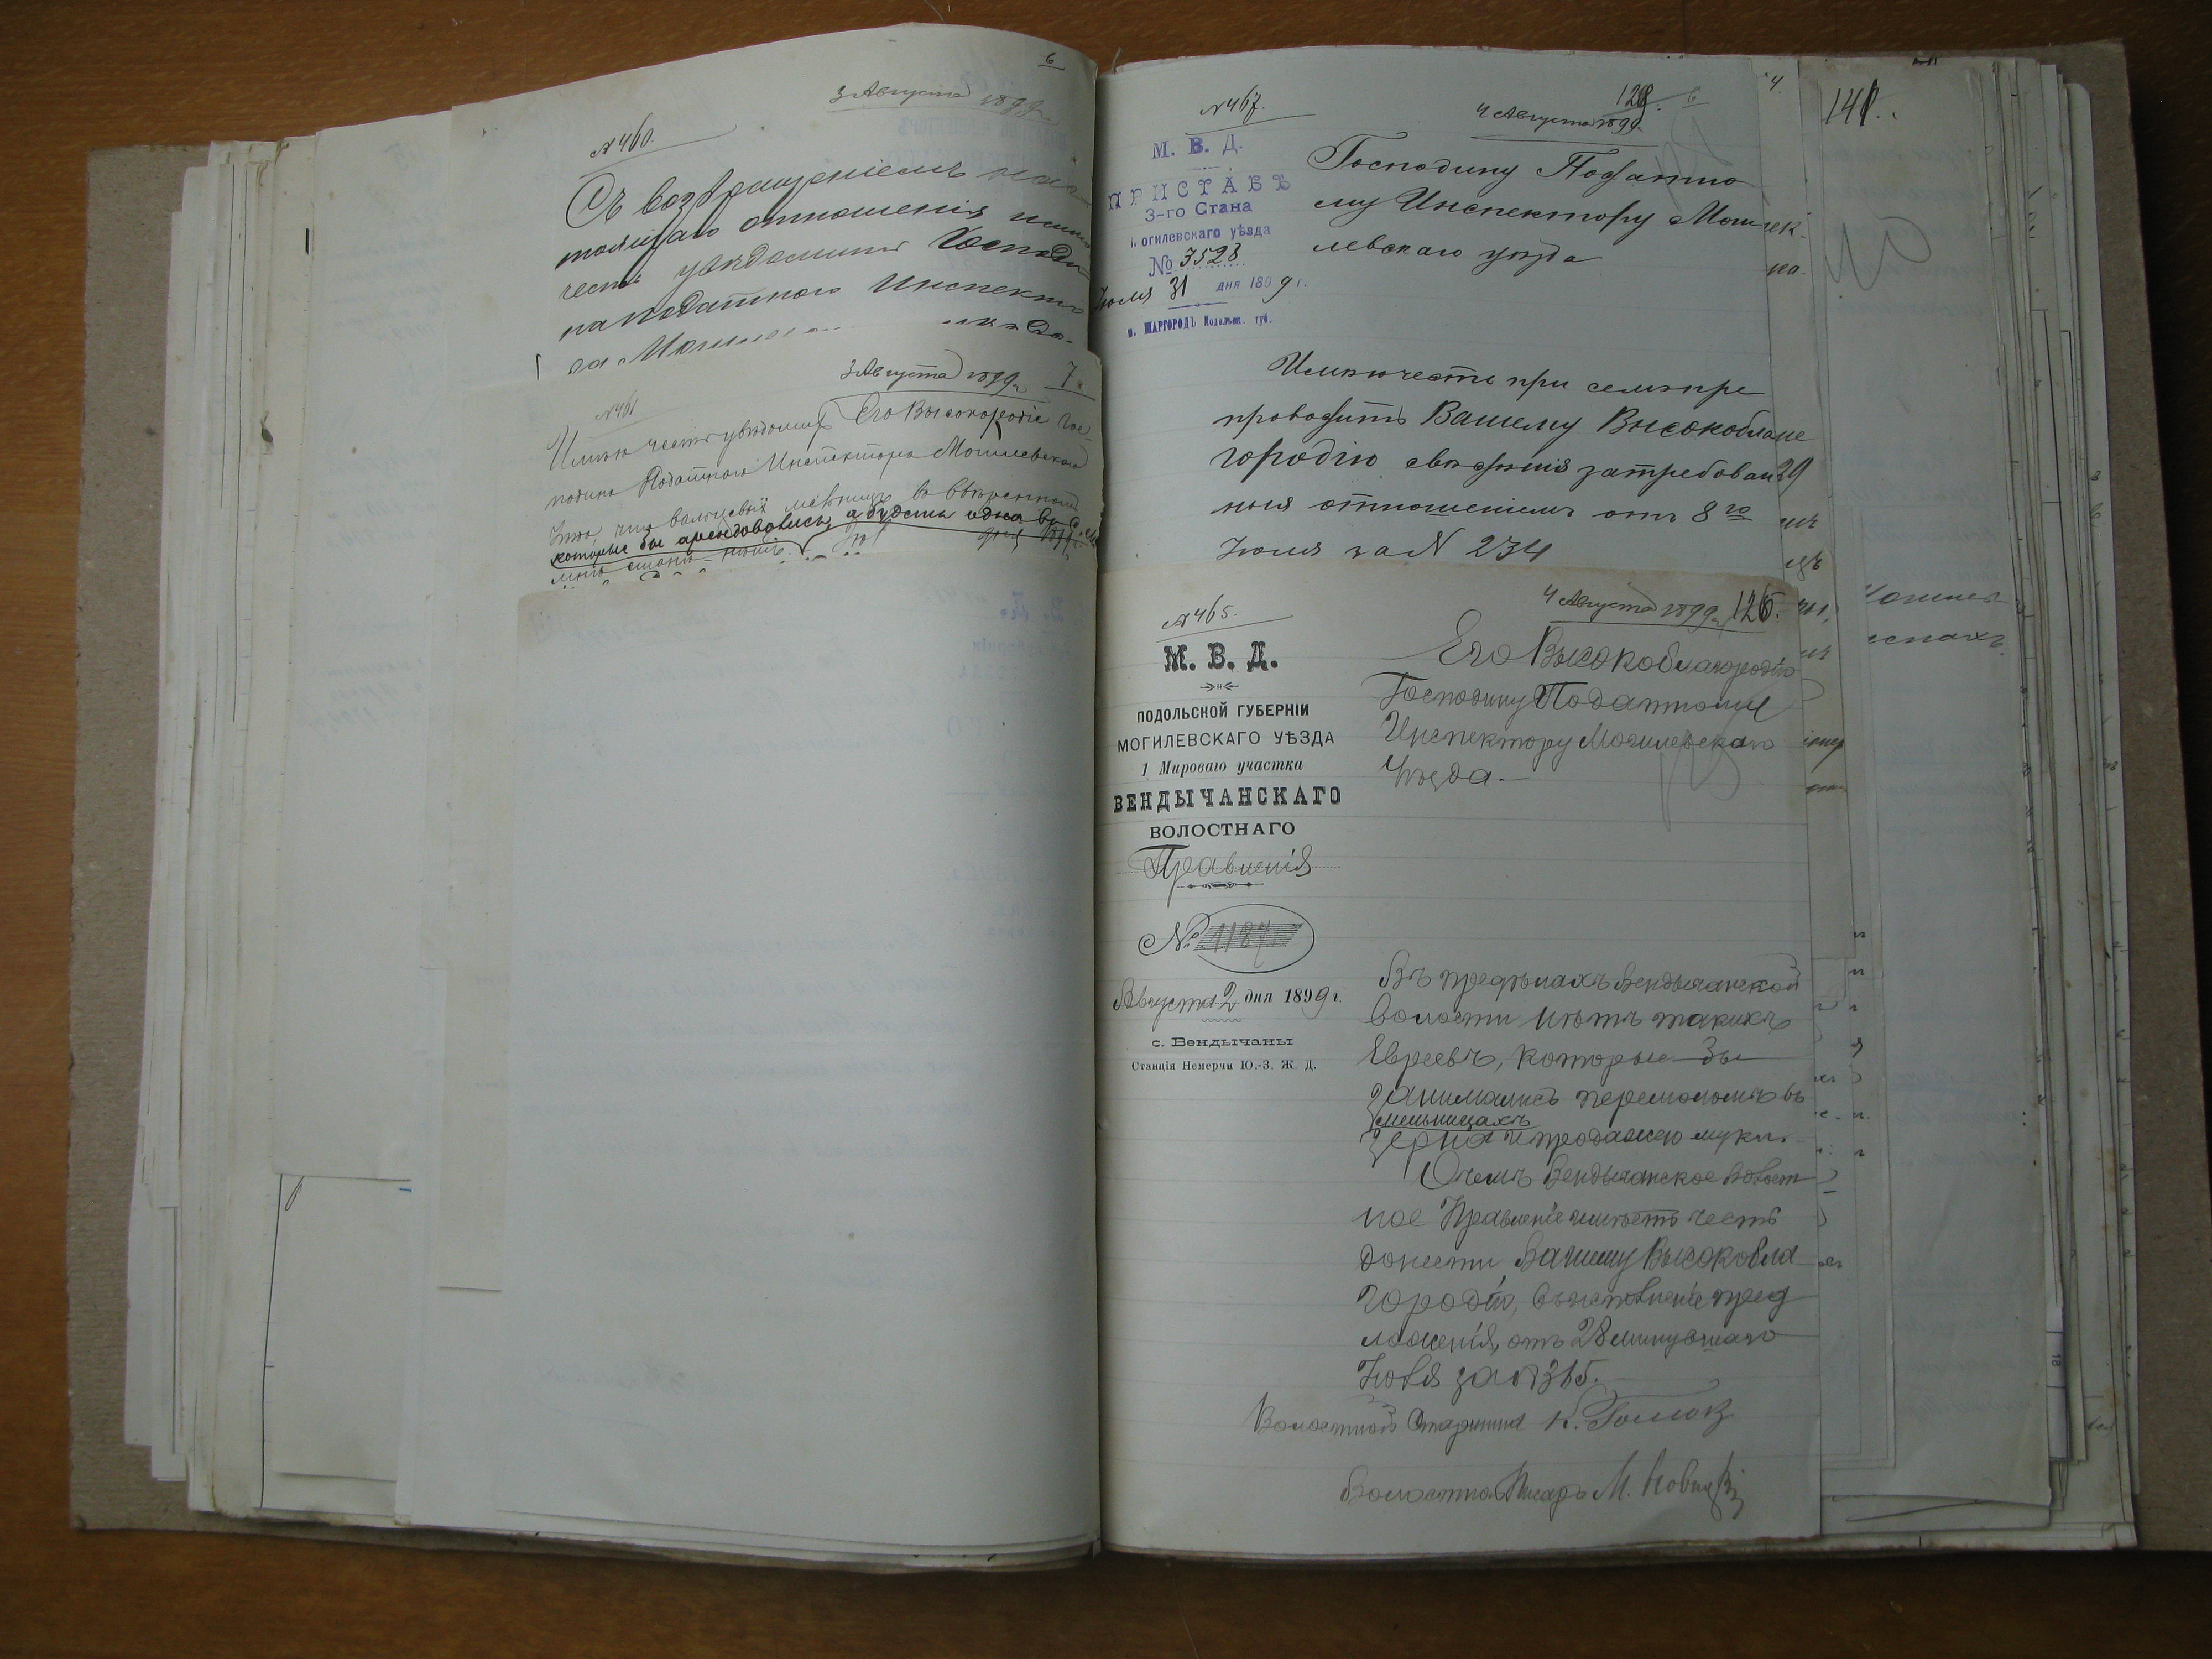 6
3 Августа 1899 г.
N 460.
Съ возвращеніемъ нас
тоящаго отношенія имѣю
честь увѣдомить Господи-
на Податного Инспекто
ра
3 Августа 1899 г. 7.
N 461
Имѣю честь увѣдомить Его Высокородіе Гос-
подина Податного Инспектора Могилевскаго
что вальцевыхъ мельницъ во ввѣренномъ
которые бы арендовались, а будетъ одна
мнѣ станѣ
N 467.
4 Августа 1899.
128. 6
М. В. Д.
ПРИСТАВЪ
3-го Стана
Могилевскаго уѣзда
№ 3528
Іюля 31 дня 1899 г.
м. ШАРГОРОДЪ Подольск. губ.
Господину Податно
му Инспектору Моги
левскаго уѣзда
Имѣю честь при семъ пре
проводить Вашему Высокобла
городію свѣденія затребован
ныя отношеніемъ отъ 8 го
Іюля за N 234
N 465.
4 Августа 1899 г. 126.
М. В. Д.
ПОДОЛЬСКОЙ ГУБЕРНІИ
МОГИЛЕВСКАГО УѢЗДА
1 Мироваго участка
ВЕНДЫЧАНСКАГО
ВОЛОСТНАГО
Правленія
№ 1187
Августа 2 дня 1899 г.
с. Вендычаны
Станція Немерчи Ю.-З. Ж. Д.
Его Высокоблагородію
Господину Податному
Инспектору Могилевскаго
Уѣзда.
Въ предѣлахъ Вендычанской
волости нѣтъ такихъ
Евреевъ, которые бы
занимались перемоломъ въ
мельницахъ
зерна и продажею муки.
О чемъ Вендычанское Волост
ное Правленіе имѣетъ честь
донести Вашему Высокобла
городію, въ исполненіе пред
ложенія, отъ 28 минувшаго
Іюля за N 315.
Волостной Старшина К.
Волостной Писарь М. Новицкій
141.